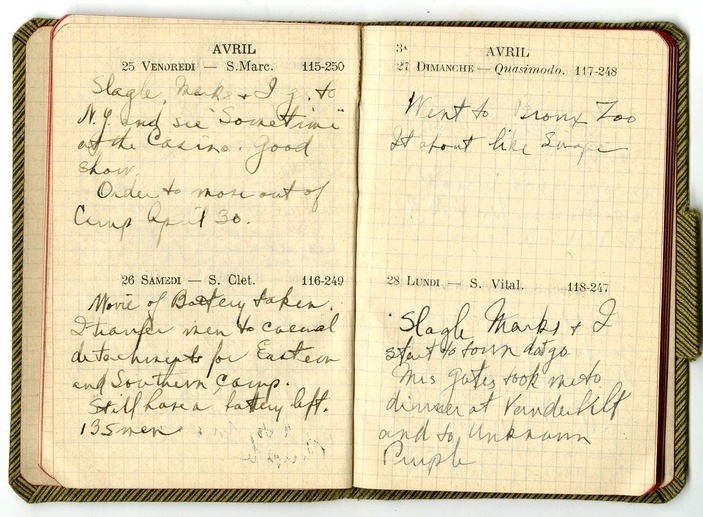 AVRIL
25 VENDREDI — S. Marc. 115-250
Slagle, Marks & I go to
N.Y. and see "Sometime"
at the Casino. Good
show.
Order to move out of
Camp April 30.
26 SAMEDI — S. Clet. 116-249
Movie of Battery taken.
Transfer men to casual
detachments for Eastern
and Southern camp.
Still have a battery left.
135 men
AVRIL
27 DIMANCHE — Quasimodo. 117-248
Went to Bronx Zoo
It about like Swope
28 LUNDI — S. Vital. 118-247
Slagle Marks & I
start to town
Mrs Gates took me to
dinner at Vanderbilt
and to Unknown
Purple